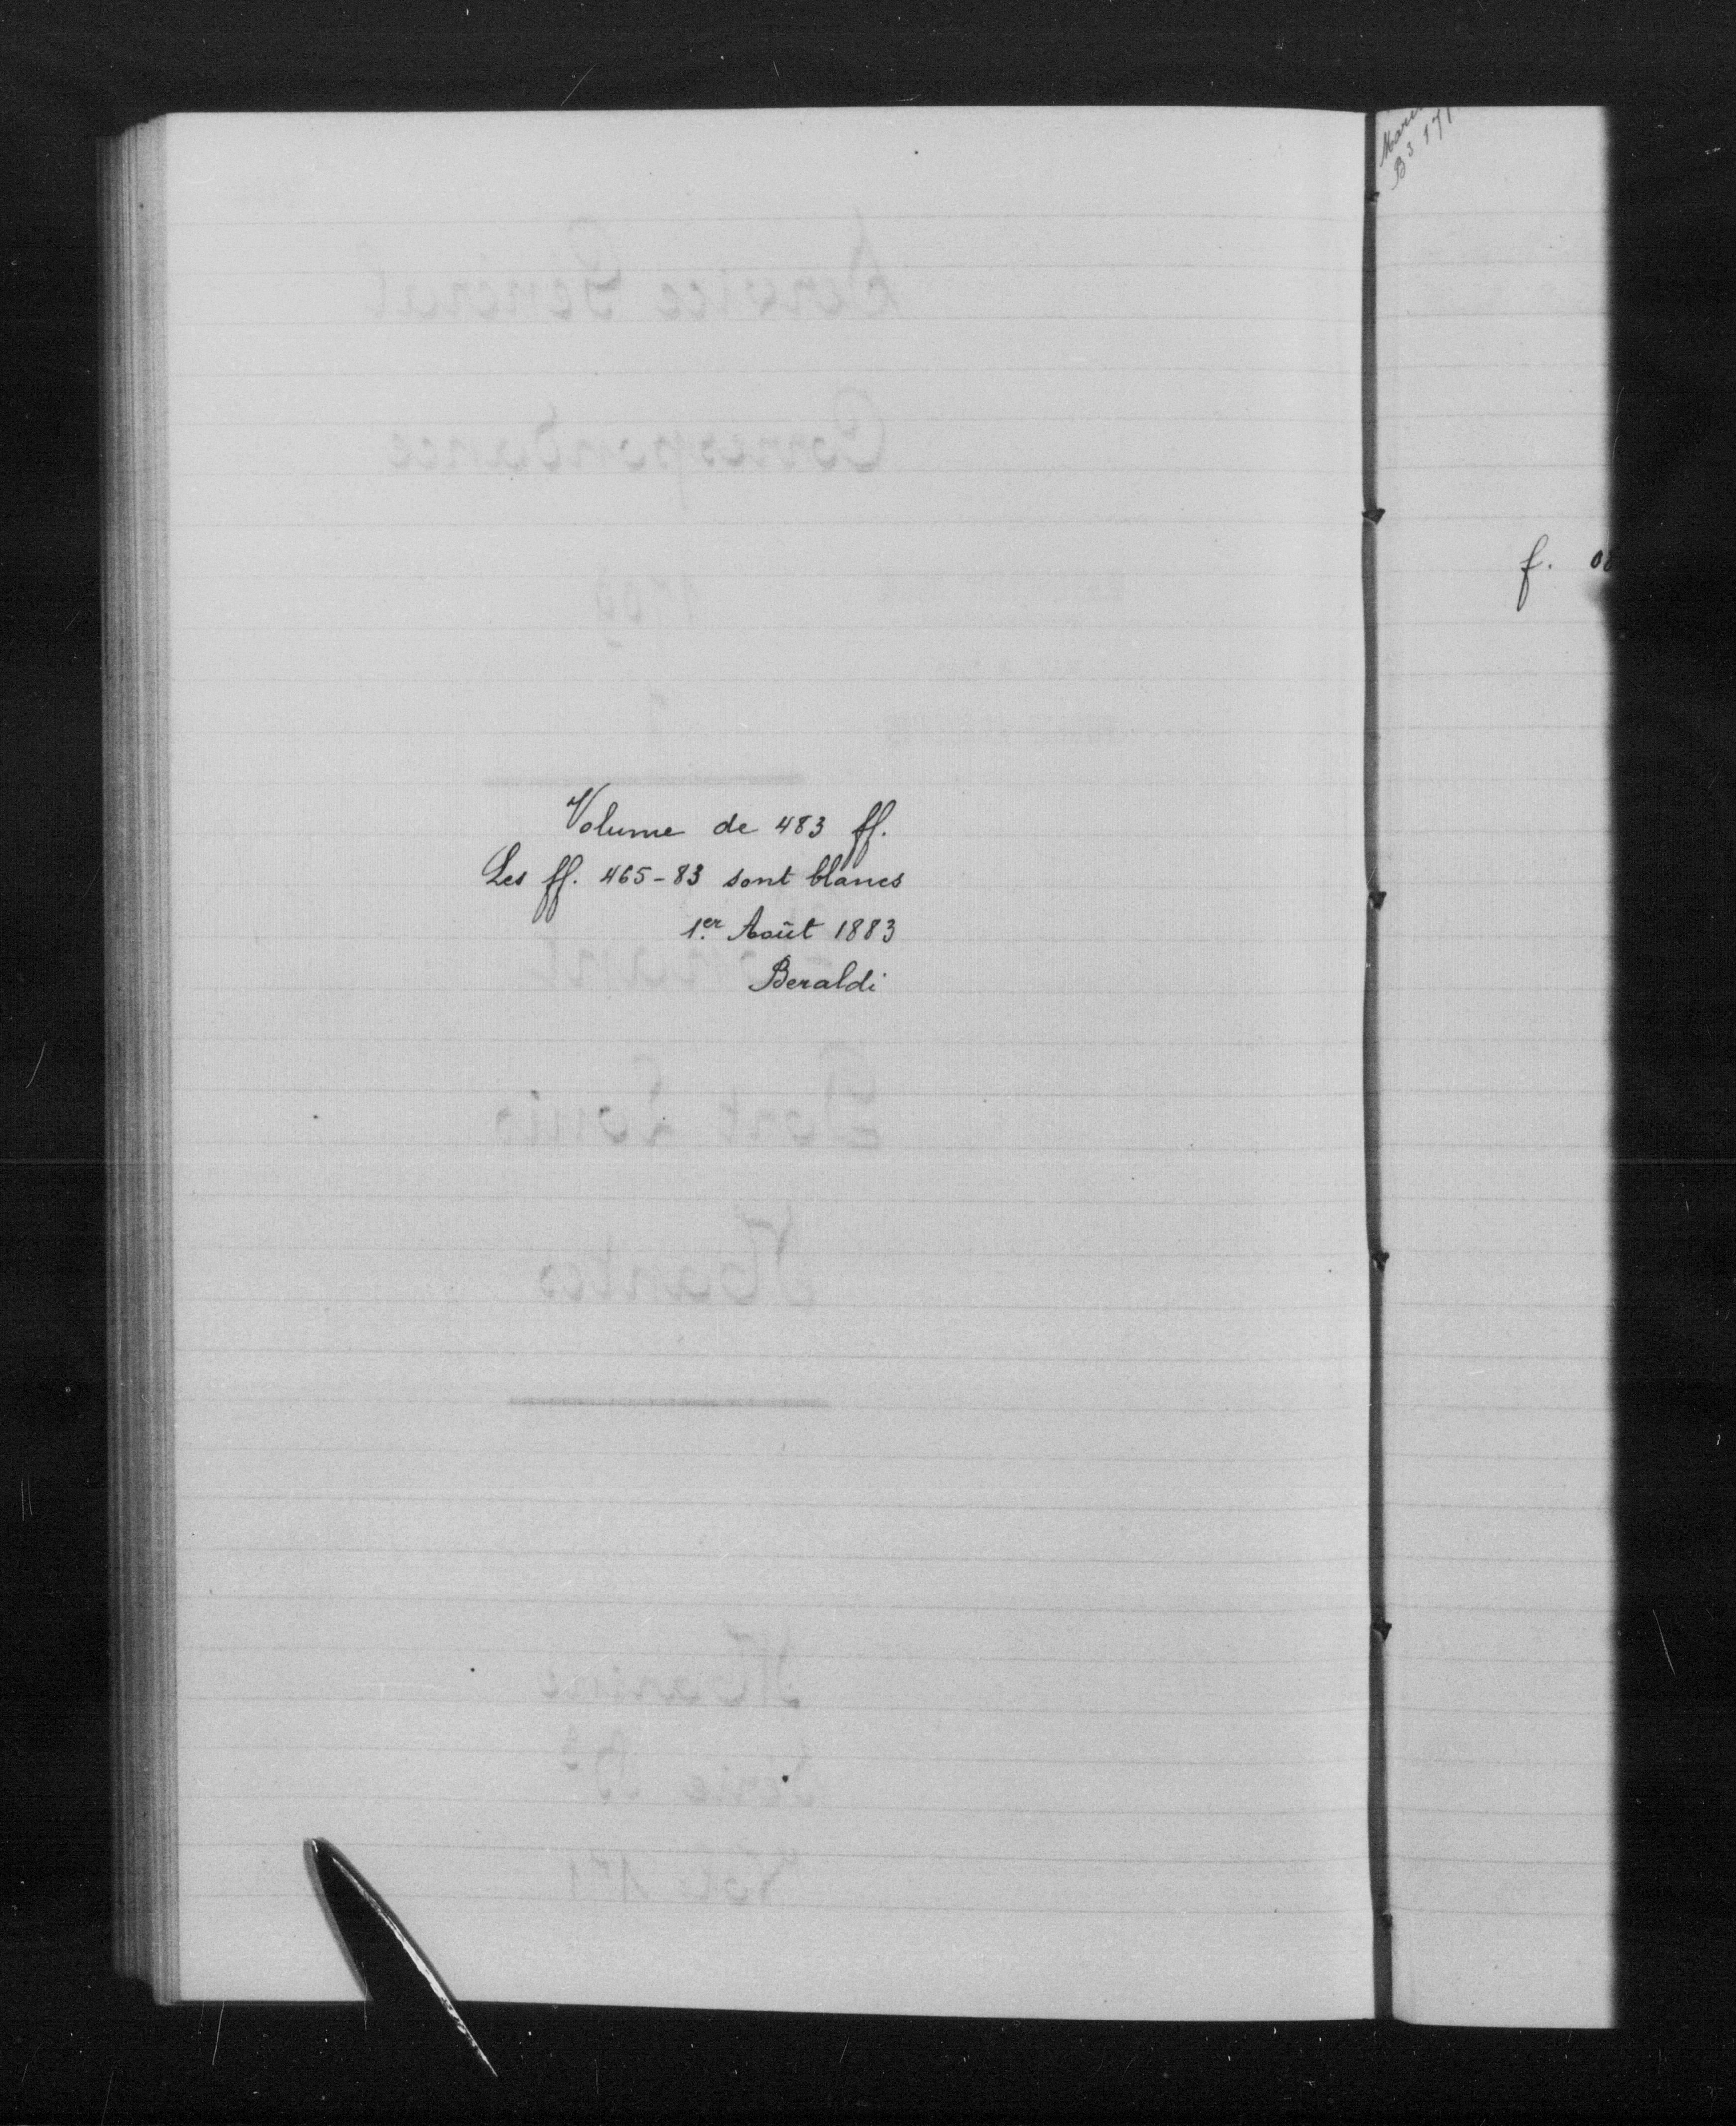 Volume de 483 ff.
Les ff. 465-83 sont blancs
1er Août 1883
Beraldi
B3 171
f.